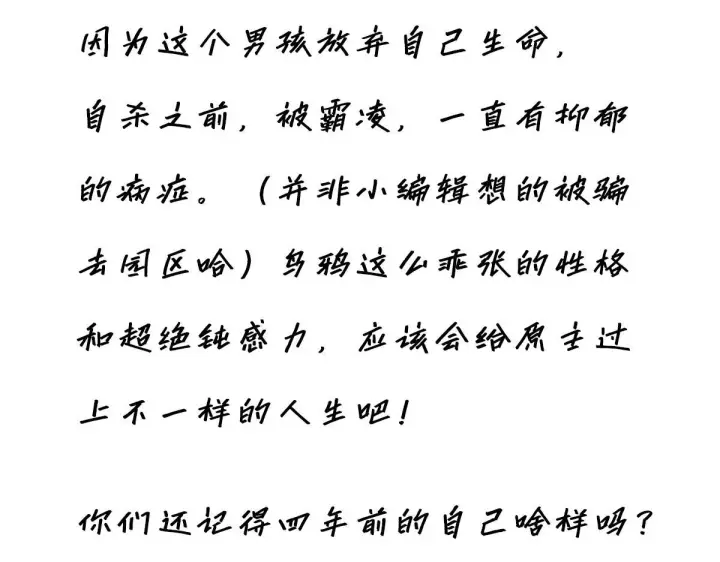 因为这个男孩放弃自己生命，
自杀之前，被霸凌，一直有抑郁
的病症。（并非小编辑想的被骗
去园区哈）乌鸦这么乖张的性格
和超绝钝感力，应该会给原主过
上不一样的人生吧！
你们还记得四年前的自己啥样吗？